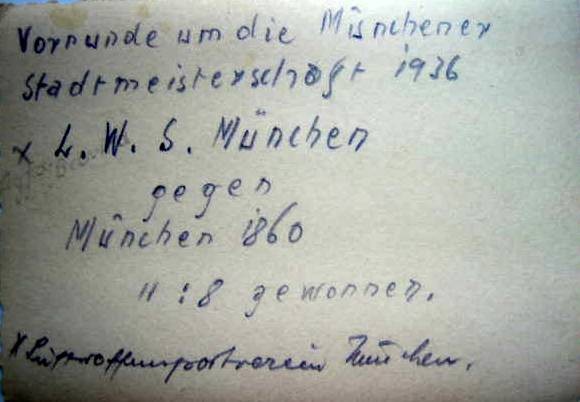 Vorrunde um die Münchener
Stadtmeisterschaft 1936
x L. W. S. München
gegen
München 1860
11 : 8 gewonnen.
x Luftwaffensportverein München.